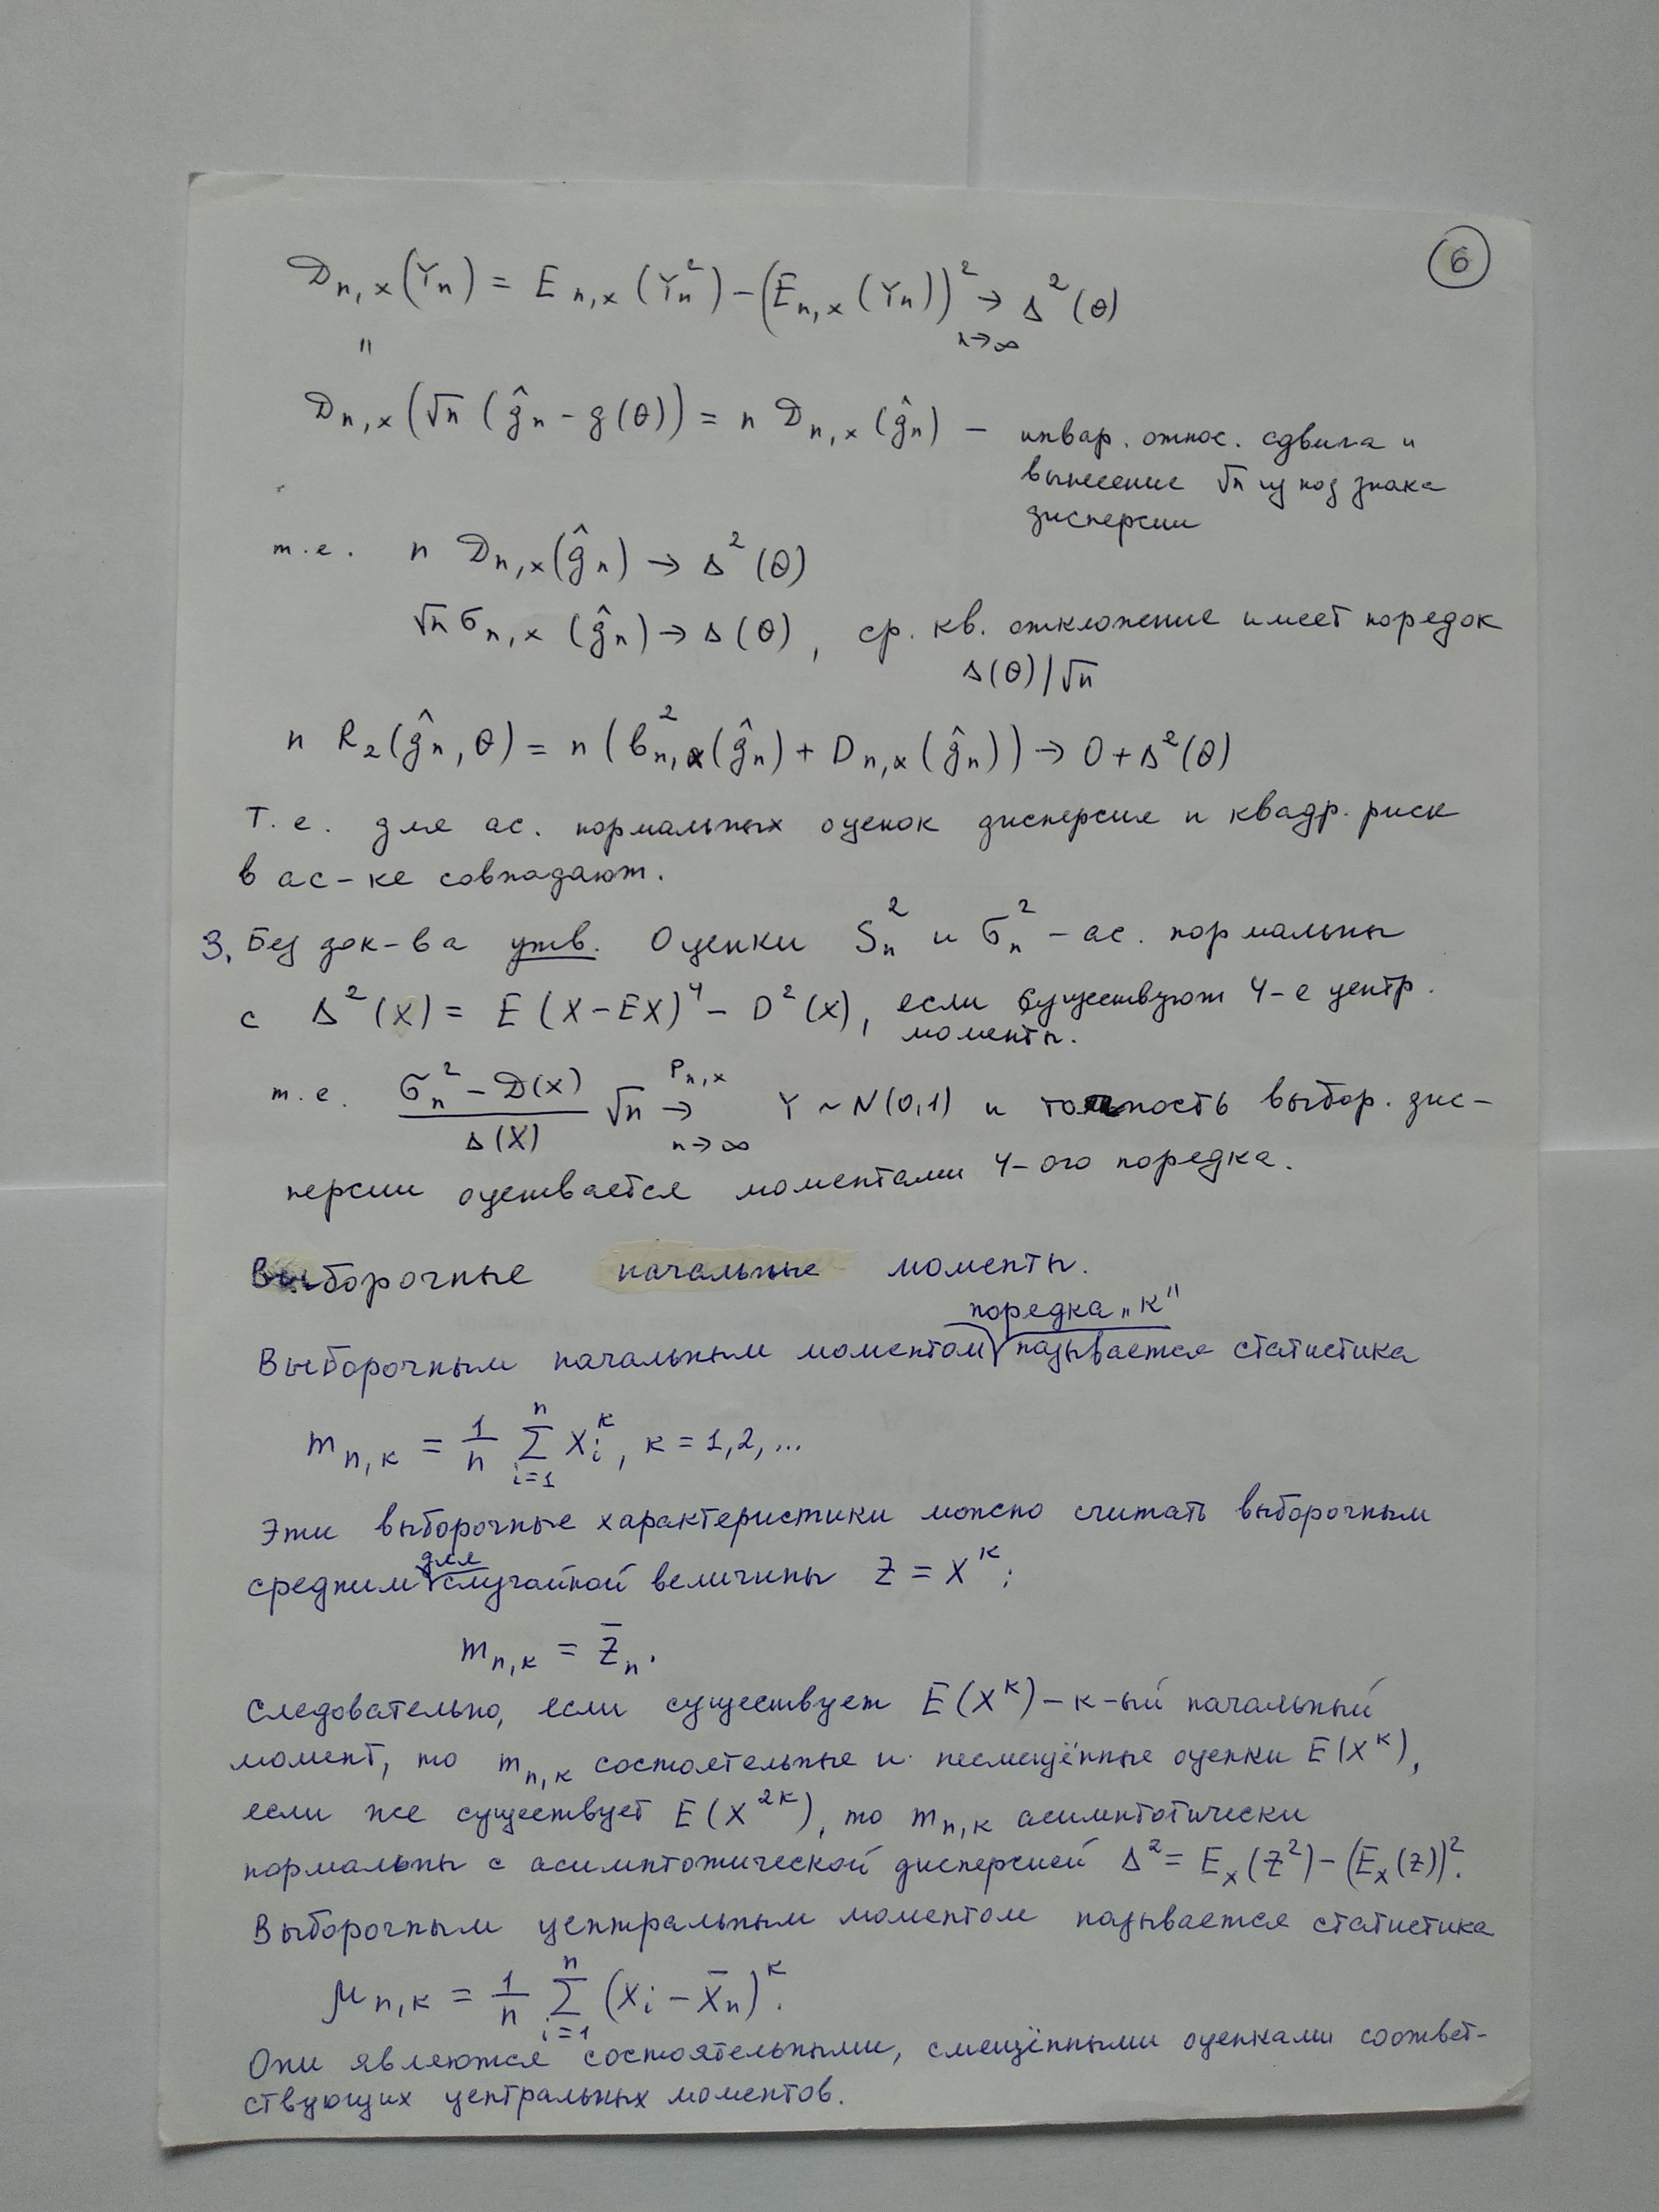 6
D_{n,x}(Y_n) = E_{n,x}(Y_n^2) - (E_{n,x}(Y_n))^2 →_{n→∞} Δ^2(θ)
"
D_{n,x}(√n (ĝ_n - g(θ)) = n D_{n,x}(ĝ_n) - инвар. относ. сдвига и
вынесение √n из под знака
дисперсии
т.е. n D_{n,x}(ĝ_n) → Δ^2(θ)
√n σ_{n,x}(ĝ_n) → Δ(θ), ср. кв. отклонение имеет порядок
Δ(θ)/√n
n R_2(ĝ_n, θ) = n (b^2_{n,x}(ĝ_n) + D_{n,x}(ĝ_n)) → 0 + Δ^2(θ)
Т.е. для ас. нормальных оценок дисперсия и квадр. риск
в ас-ке совпадают.
3. Без док-ва утв. Оценки S_n^2 и σ_n^2 - ас. нормальны
с Δ^2(X) = E(X-EX)^4 - D^2(X), если существуют 4-е центр.
моменты.
т.е. \frac{σ_n^2 - D(X)}{Δ(X)} √n →^{P_{n,x}}_{n→∞} Y ~ N(0,1) и точность выбор. дис-
персии оценивается моментами 4-ого порядка.
Выборочные начальные моменты.
порядка "к"
Выборочным начальным моментом называется статистика
m_{n,k} = \frac{1}{n} Σ_{i=1}^{n} X_i^k, k = 1,2,...
Эти выборочные характеристики можно считать выборочным
средним для случайной величины Z = X^k;
m_{n,k} = Z̄_n.
Следовательно, если существует E(X^k) - к-ый начальный
момент, то m_{n,k} состоятельные и несмещённые оценки E(X^k),
если же существует E(X^{2k}), то m_{n,k} асимптотически
нормальны с асимптотической дисперсией Δ^2 = E_x(Z^2) - (E_x(Z))^2.
Выборочным центральным моментом называется статистика
μ_{n,k} = \frac{1}{n} Σ_{i=1}^{n} (X_i - X̄_n)^k.
Они являются состоятельными, смещёнными оценками соответ-
ствующих центральных моментов.